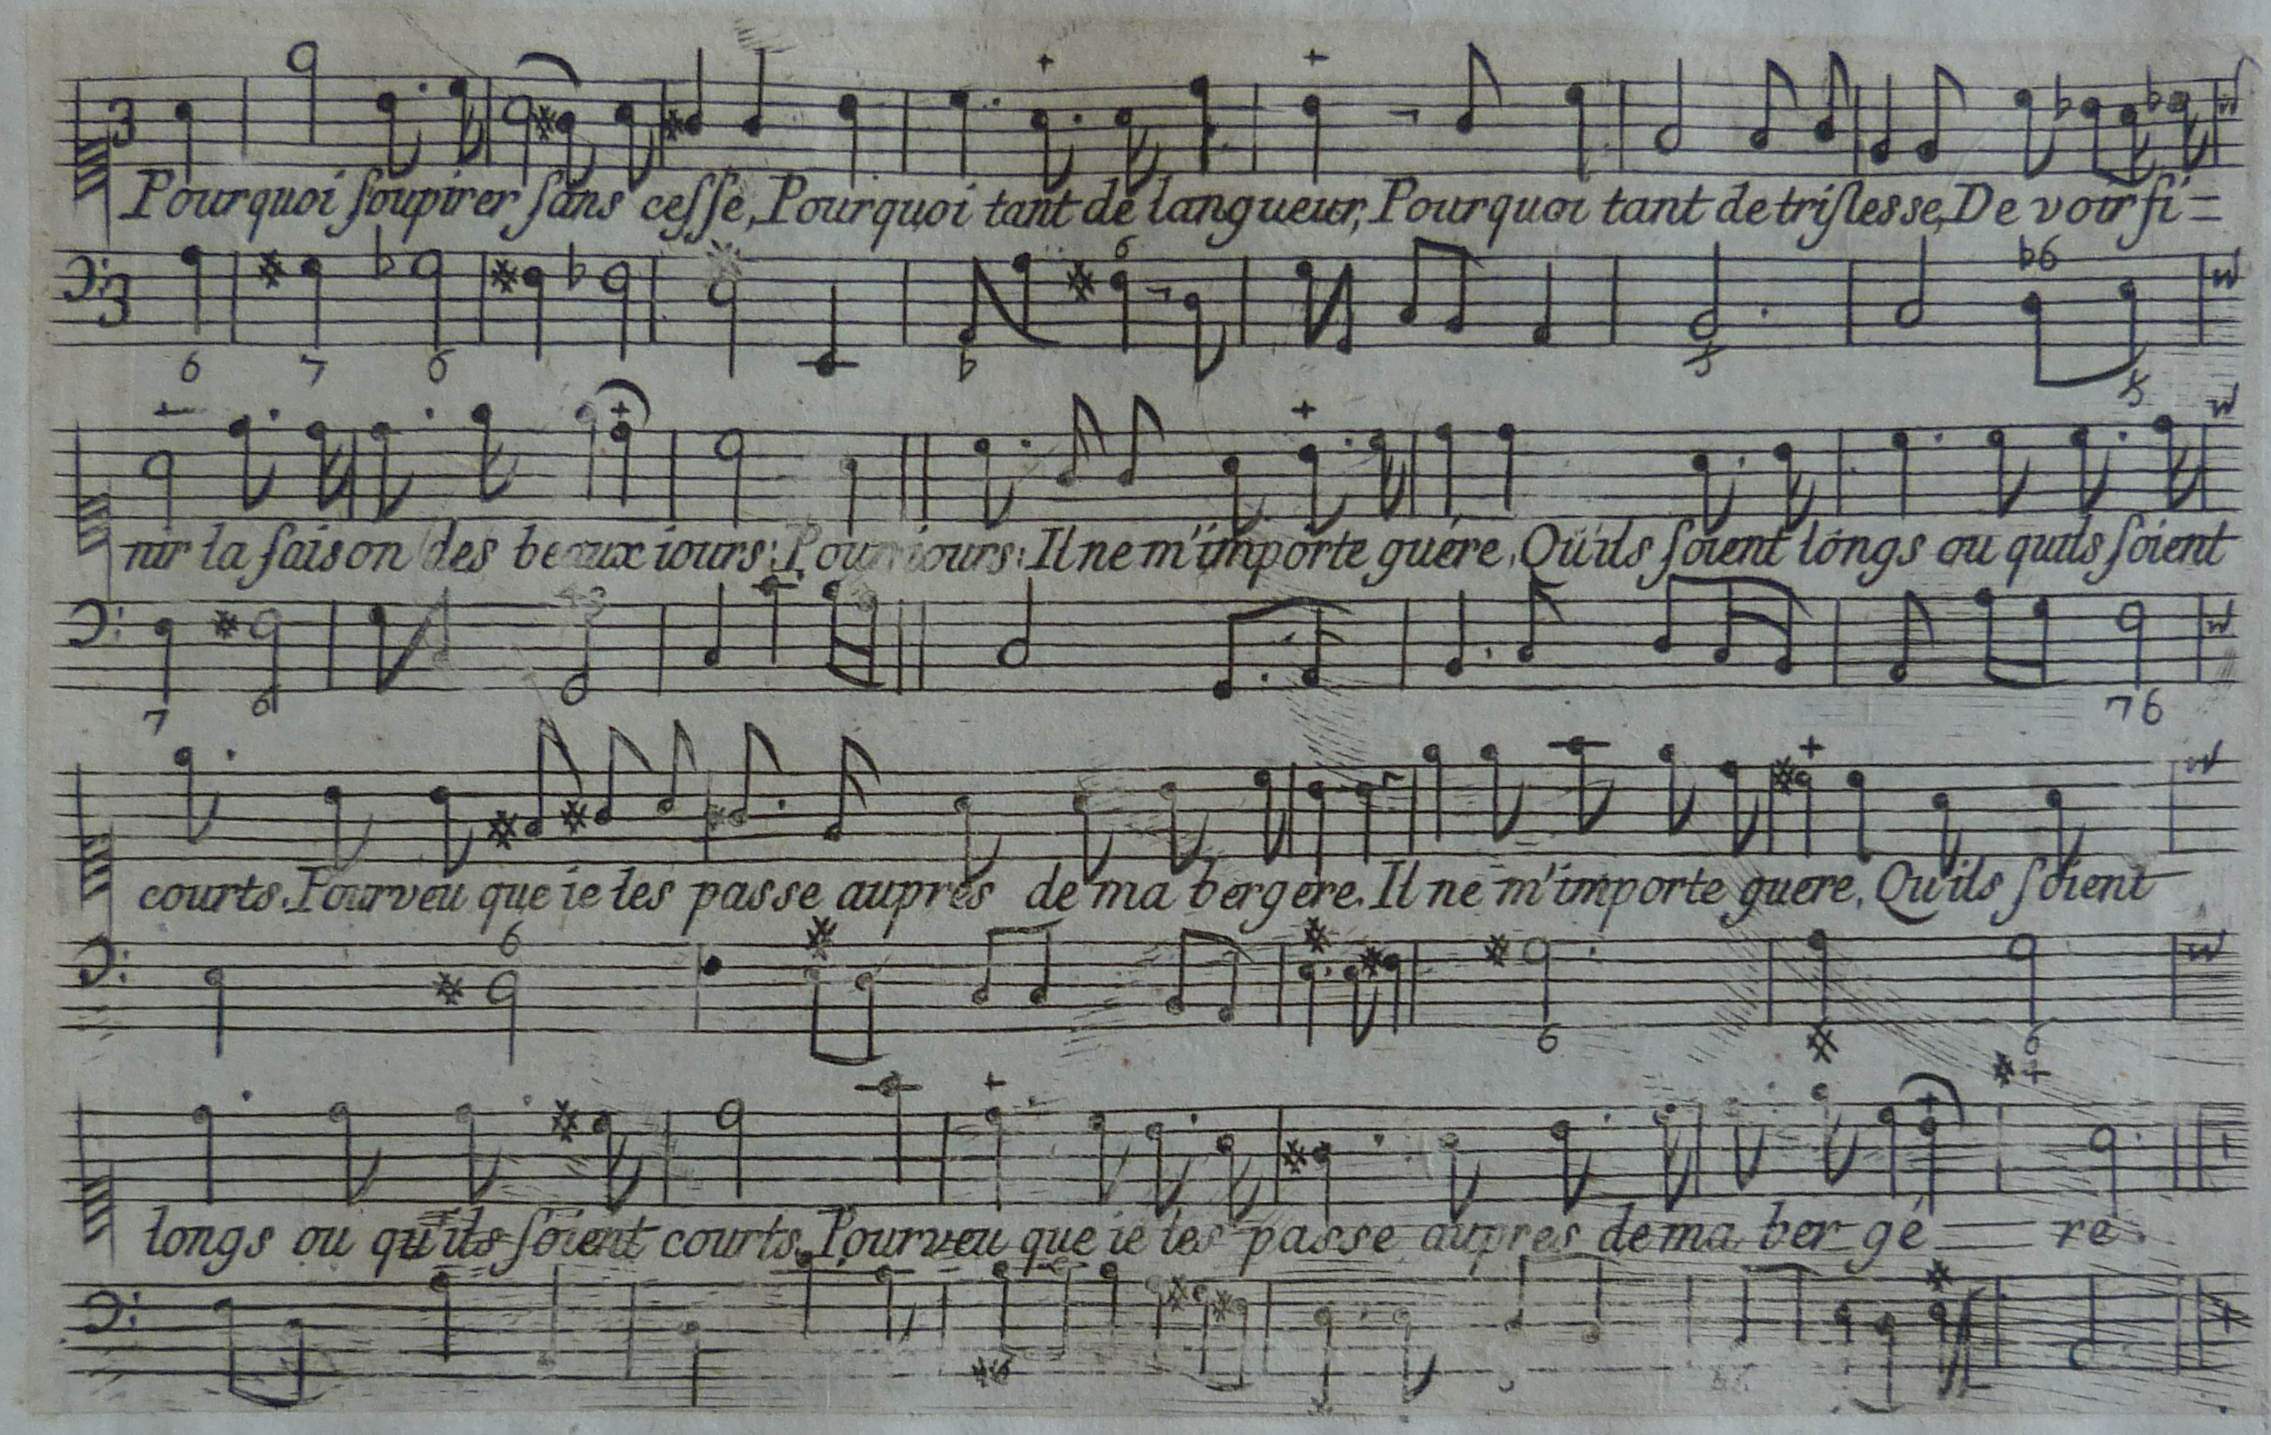 Pourquoi ſoupirer ſans ceſſe, Pourquoi tant de langueur, Pourquoi tant de triſtesse, De voir fi=
nir la ſaison des beaux iours: Pour iours: Il ne m'importe guére, Qu'ils ſoient longs ou quils ſoient
courts. Pourveu que ie les passe aupres de ma bergere. Il ne m'importe guere, Qu'ils ſoient
longs ou qu'ils ſoient courts, Pourveu que ie les passe aupres de ma ber gé re.